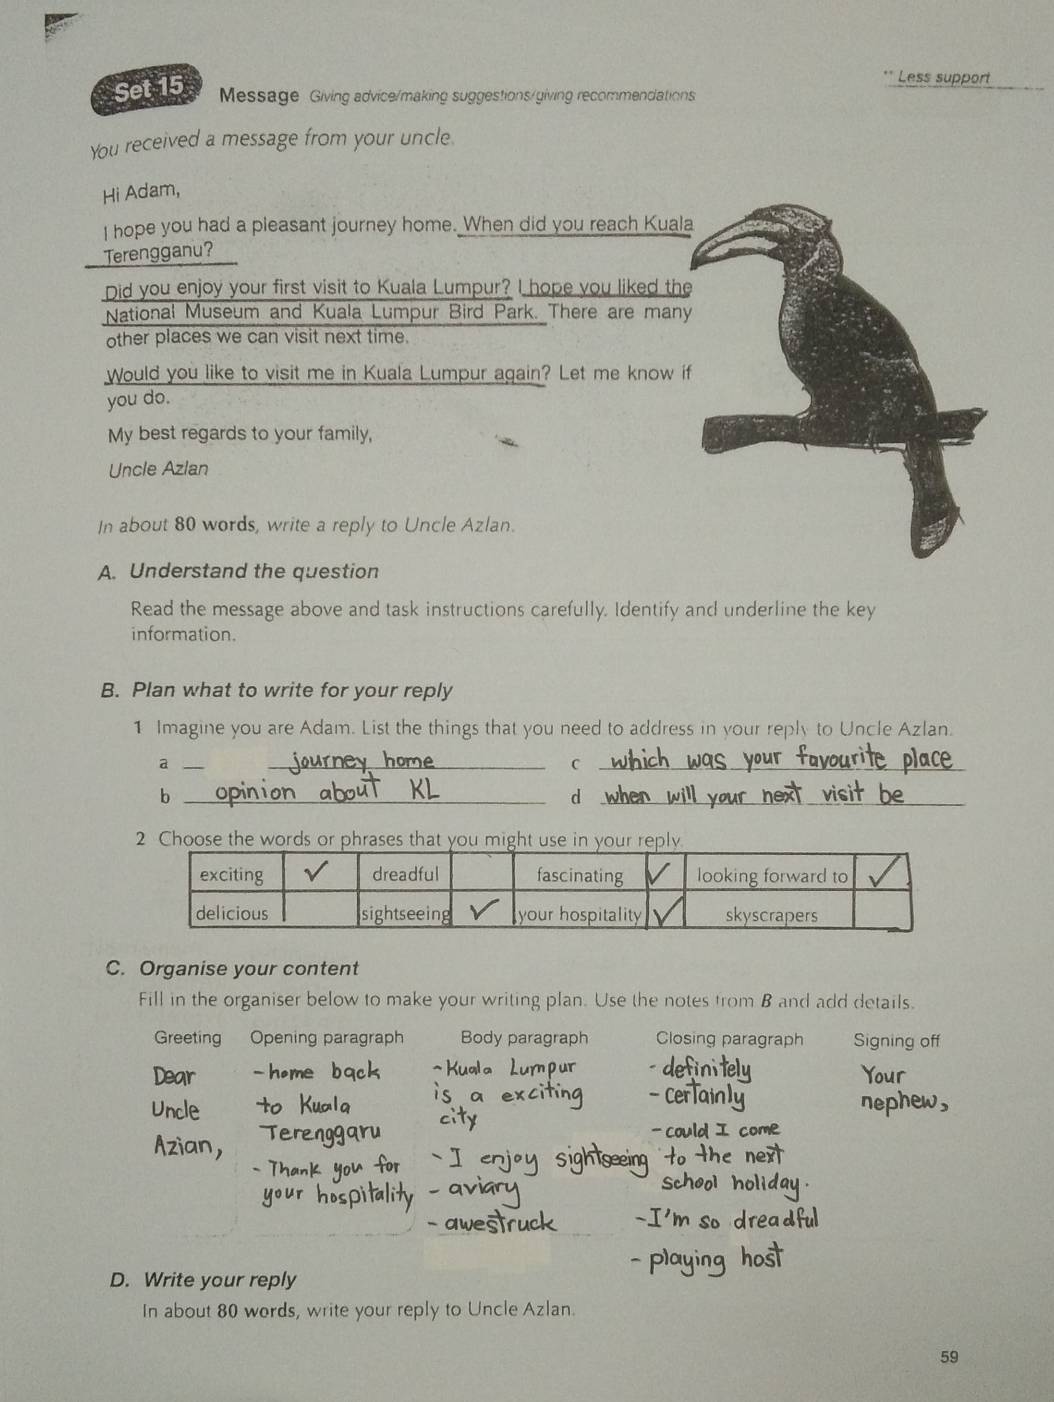 Set 15 Message Giving advice/making suggestions/giving recommendations
** Less support
You received a message from your uncle.
Hi Adam,
I hope you had a pleasant journey home. When did you reach Kuala
Terengganu?
Did you enjoy your first visit to Kuala Lumpur? I hope you liked the
National Museum and Kuala Lumpur Bird Park. There are many
other places we can visit next time.
Would you like to visit me in Kuala Lumpur again? Let me know if
you do.
My best regards to your family,
Uncle Azlan
In about 80 words, write a reply to Uncle Azlan.
A. Understand the question
Read the message above and task instructions carefully. Identify and underline the key
information.
B. Plan what to write for your reply
1 Imagine you are Adam. List the things that you need to address in your reply to Uncle Azlan.
a journey home
c which was your favourite place
b opinion about KL
d when will your next visit be
2 Choose the words or phrases that you might use in your reply.
exciting ✓ dreadful fascinating ✓ looking forward to ✓
delicious sightseeing ✓ your hospitality ✓ skyscrapers
C. Organise your content
Fill in the organiser below to make your writing plan. Use the notes from B and add details.
Greeting
Dear
Uncle
Azian,
Opening paragraph
- home back
to Kuala
Terenggaru
- Thank you for
your hospitality
Body paragraph
- Kuala Lumpur
is a exciting
city
- I enjoy sightseeing
- aviary
- awestruck
Closing paragraph
- definitely
- certainly
- could I come
to the next
school holiday.
- I'm so dreadful
- playing host
Signing off
Your
nephew,
D. Write your reply
In about 80 words, write your reply to Uncle Azlan.
59